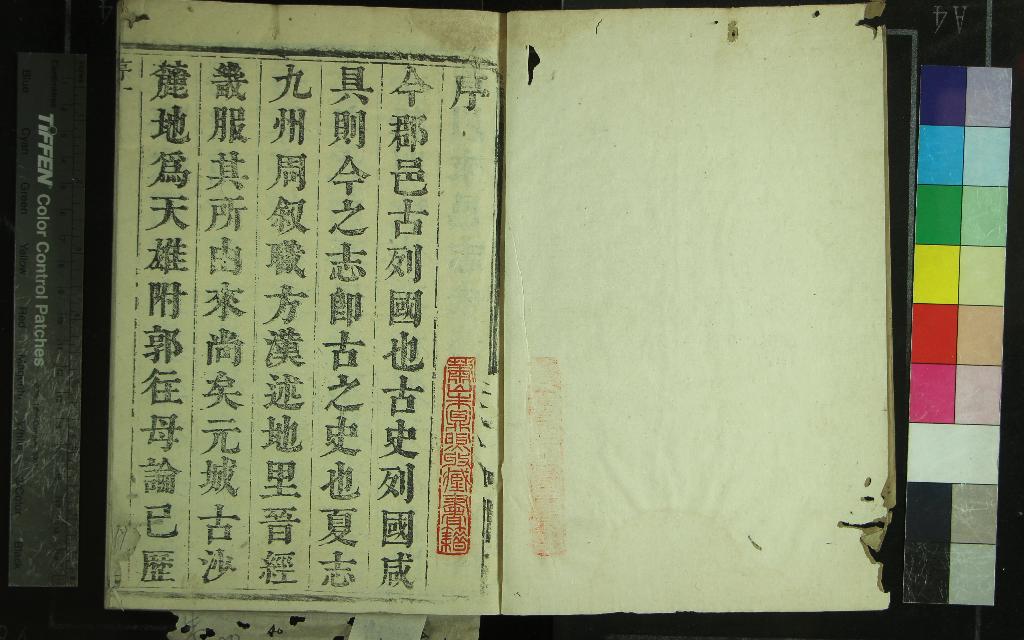 序
今郡邑古列國也古史列國咸
具則今之志卽古之史也夏志
九州周叙職方漢述地里晉經
畿服其所由來尚矣元城古沙
麓地爲天雄附郭往母論已歷
TIFFEN Color Control Patches
Blue Cyan Green Yellow Red Magenta
A4